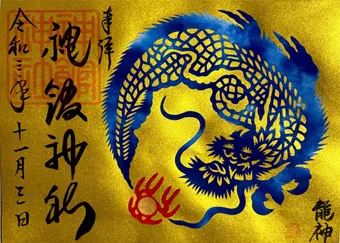 奉拝
神館神社
令和三年十一月三日
龍神